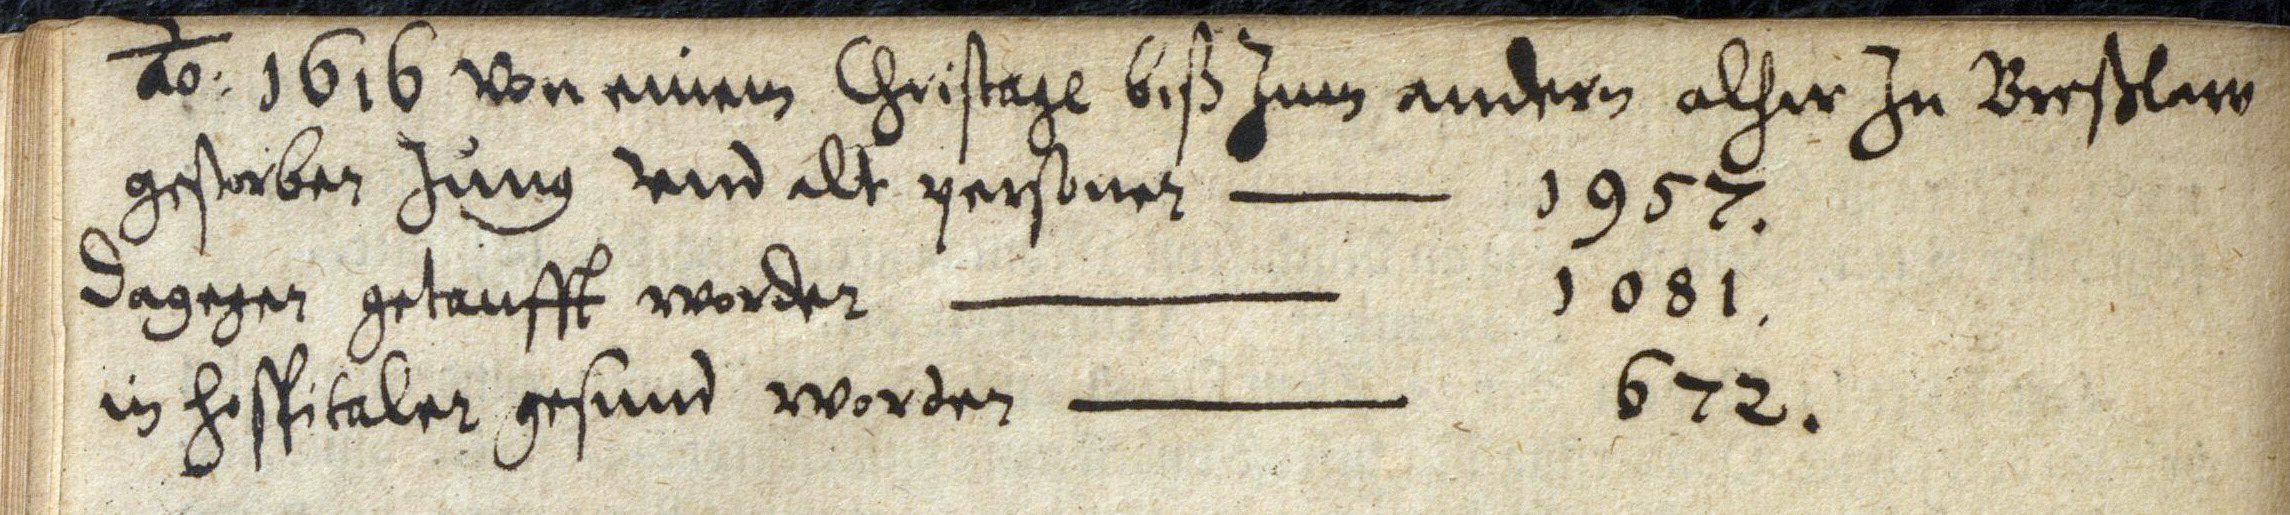 Ao: 1616 Von einem Christage biß Zum andern alhier In Breßlaw
gestorben Jung vnd alt personen — 1957.
Dagegen getaufft worden — 1081.
in hospitalen gesund worden — 672.